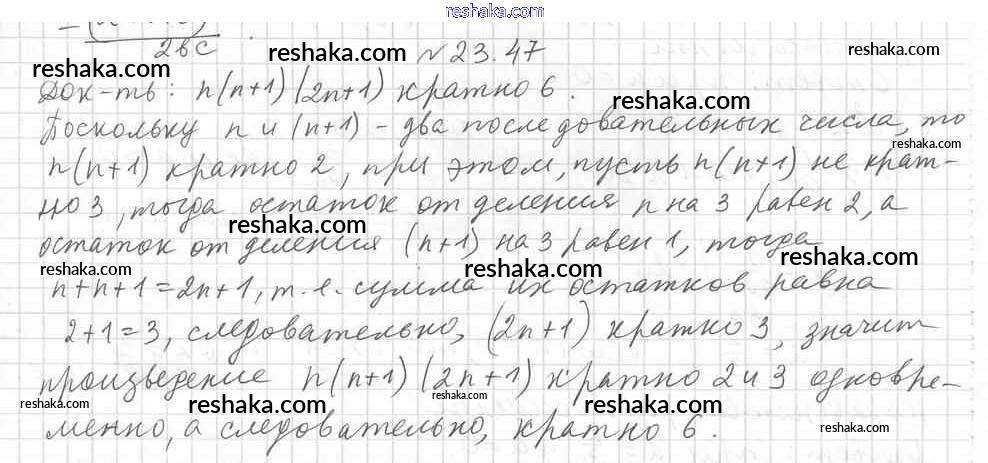 reshaka.com
2bc
№ 23.47
reshaka.com
reshaka.com
reshaka.com
Док-ть: n(n+1)(2n+1) кратно 6.
reshaka.com
Поскольку n и (n+1) - два последовательных числа, то
reshaka.com
n(n+1) кратно 2, при этом, пусть n(n+1) не крат-
но 3, тогда остаток от деления n на 3 равен 2, а
reshaka.com
reshaka.com
остаток от деления (n+1) на 3 равен 1, тогда
reshaka.com
reshaka.com
reshaka.com
n+n+1=2n+1, т.е. сумма их остатков равна
2+1=3, следовательно, (2n+1) кратно 3, значит
reshaka.com
произведение n(n+1)(2n+1) кратно 2 и 3 одновре-
reshaka.com
reshaka.com
reshaka.com
менно, а следовательно, кратно 6.
reshaka.com